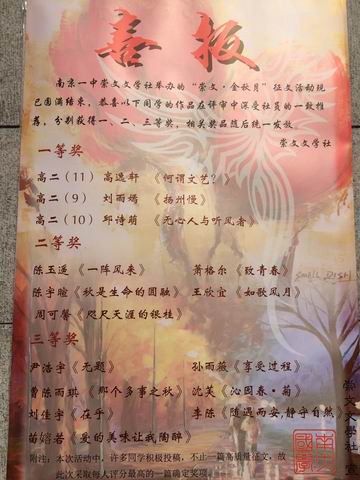 喜报
南京一中崇文文学社举办的“崇文·金秋月”征文活动现
已圆满结束，恭喜以下同学的作品在评审中深受社员的一致推
荐，分别获得一、二、三等奖，相关奖品随后统一发放。
崇文文学社
一等奖
高二（11） 高逸轩 《何谓文艺？》
高二（9） 刘雨嫣 《扬州慢》
高二（10） 邱诗萌 《无心人与听风者》
二等奖
陈玉遥《一阵风来》 萧格尔《致青春》
陈宇暄《秋是生命的圆融》 王欣宜《如歌风月》
周可馨《咫尺天涯的银桂》
三等奖
尹浩宇《无题》 孙雨薇《享受过程》
曹陈雨琪《那个多事之秋》 沈芙《沁园春·菊》
刘佳宇《在乎》 李陈《随遇而安,静守自然》
苗嫆若《爱的美味让我陶醉》
附注：本次活动中，许多同学积极投稿，不止一篇高质量征文，故
此次采取每人评分最高的一篇确定奖项。
small
崇文文学社宣